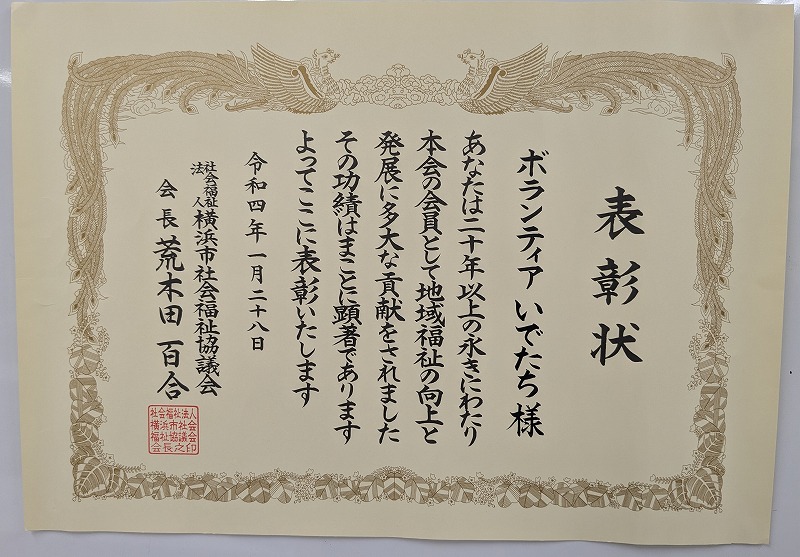 表彰状
ボランティア いでたち 様
あなたは二十年以上の永きにわたり
本会の会員として地域福祉の向上と
発展に多大な貢献をされました
その功績はまことに顕著であります
よってここに表彰いたします
令和四年一月二十八日
社会福祉法人 横浜市社会福祉協議会
会長 荒木田 百合
社会福祉法人
横浜市社会
福祉協議会
会長之印